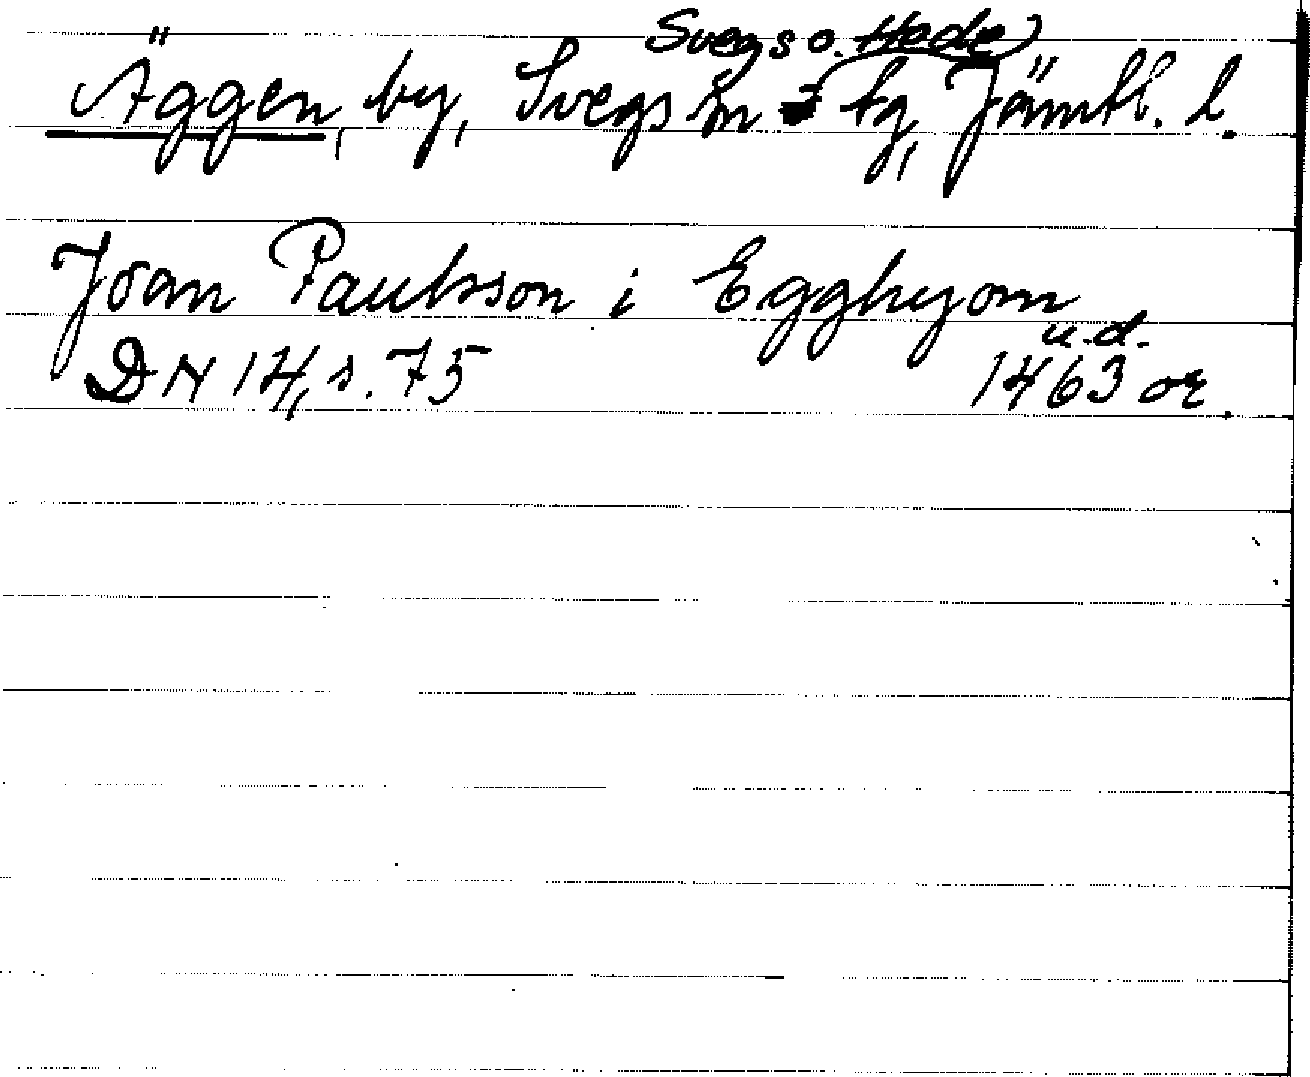 Svegs o. Hede
Äggen, by, Svegs sn tg, Jämtl. l.
Joan Paulsson i Egghyom
u.d.
DN 14, s. 75 1463 or.